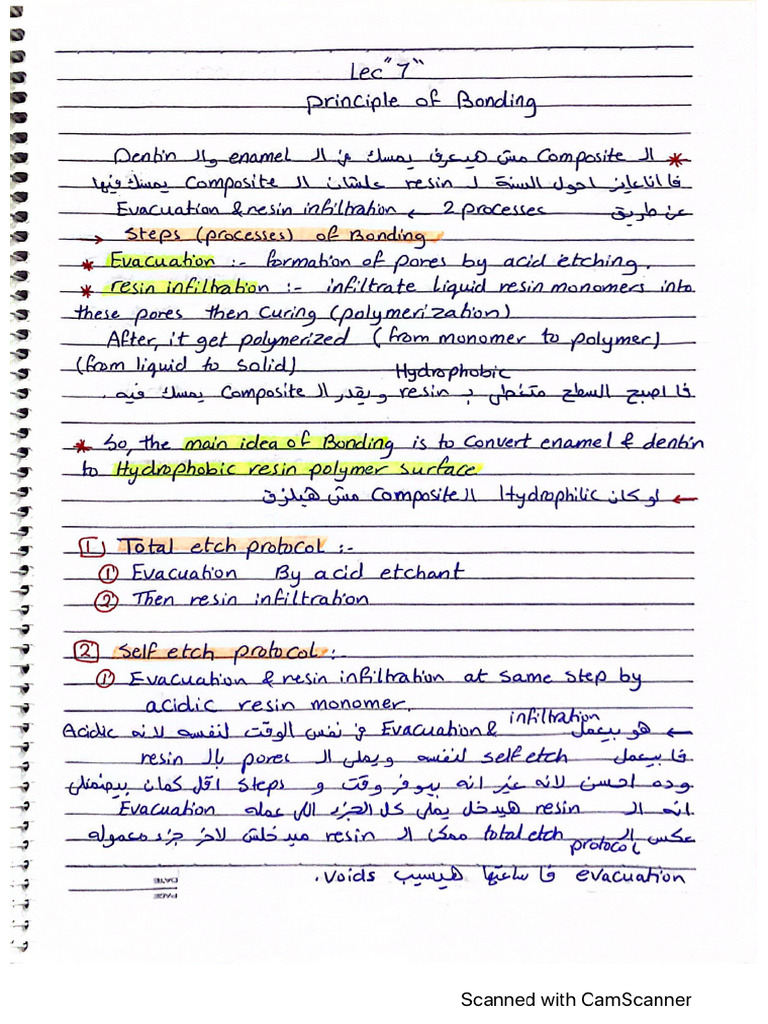 Lec "7"
principle of Bonding
* ال Composite مش هيعرف يمسك في ال enamel وال Dentin
فا انا عايز احول السنة ل resin علشان ال Composite يمسك فيها
عن طريق 2 processes ← Evacuation & resin infiltration
→ Steps (processes) of Bonding
* Evacuation :- formation of pores by acid etching.
* resin infiltration :- infiltrate liquid resin monomers into
these pores then Curing (polymerization)
After, it get polymerized (from monomer to polymer)
(from liquid to solid) Hydrophobic
فا اصبح السطح متغطي ب resin و يقدر ال Composite يمسك فيه.
* So, the main idea of Bonding is to Convert enamel & dentin
to Hydrophobic resin polymer surface
← لو كان Hydrophilic ال Composite مش هيلزق
1 Total etch protocol :-
① Evacuation By acid etchant
② Then resin infiltration
2 Self etch protocol :-
① Evacuation & resin infiltration at same step by
acidic resin monomer.
← هو بيعمل Evacuation & infiltration في نفس الوقت لنفسه لانه Acidic
فا بيعمل self etch لنفسه ويملي ال pores بال resin
وده احسن لانه غير انه بيوفر وقت و steps اقل كمان بيضمنلي
انه ال resin هيدخل يملي كل الجزء اللي عمله Evacuation
عكس ال total etch protocol ممكن ال resin ميدخلش لاخر جزء معموله
evacuation فا ساعتها هيسبب voids.
DATE
PAGE
Scanned with CamScanner